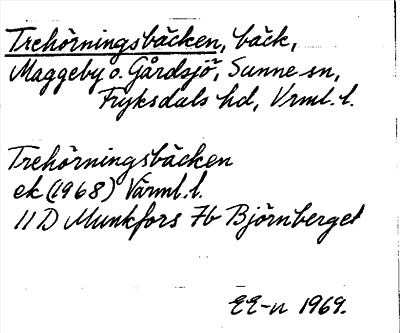 Trehörningsbäcken, bäck,
Maggeby o. Gårdsjö, Sunne sn,
Fryksdals hd, Vrml. l.
Trehörningsbäcken
ek (1968) Värml. l.
11D Munkfors 7b Björnberget
EE-n 1969.